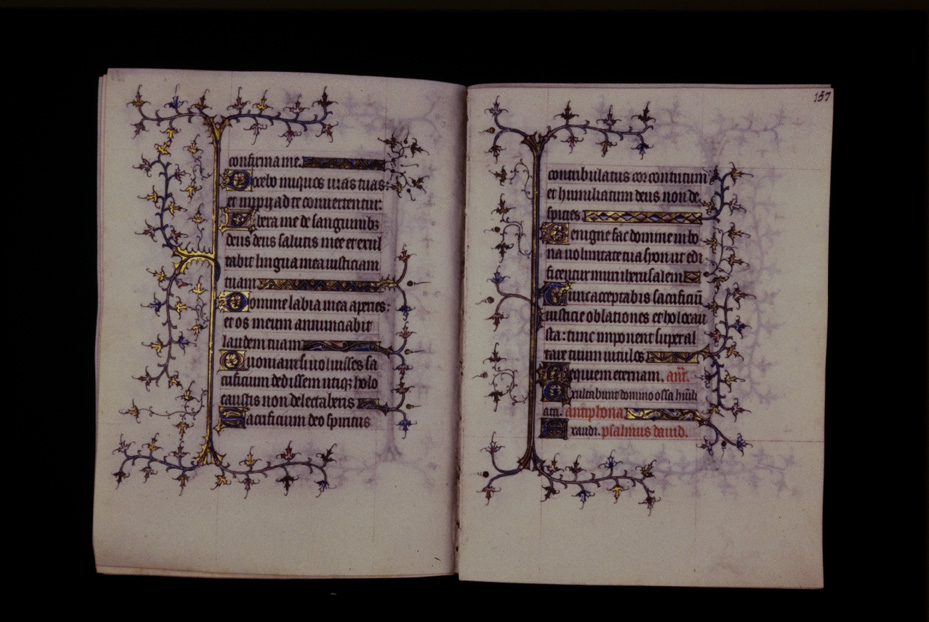 confirma me.
Docebo iniquos uias tuas:
et impij ad te conuertentur.
Libera me de sanguinibz
deus deus salutis mee et exul
tabit lingua mea iusticiam
tuam.
Domine labia mea aperies:
et os meum annunciabit
laudem tuam.
Quoniam si uoluisses sa
crificium dedissem utiqz holo
caustis non delectaberis.
Sacrificium deo spiritus
157
contribulatus cor contritum
et humiliatum deus non de
spicies.
Benigne fac domine in bo
na uoluntate tua syon ut edi
ficentur muri iherusalem
Tunc acceptabis sacrificiū
iusticie oblationes et holocau
sta: tunc imponent super al
tare tuum uitulos.
Requiem eternam. ant.
Exultabunt domino ossa humili
ata. antiphona
Exaudi. psalmus dauid.